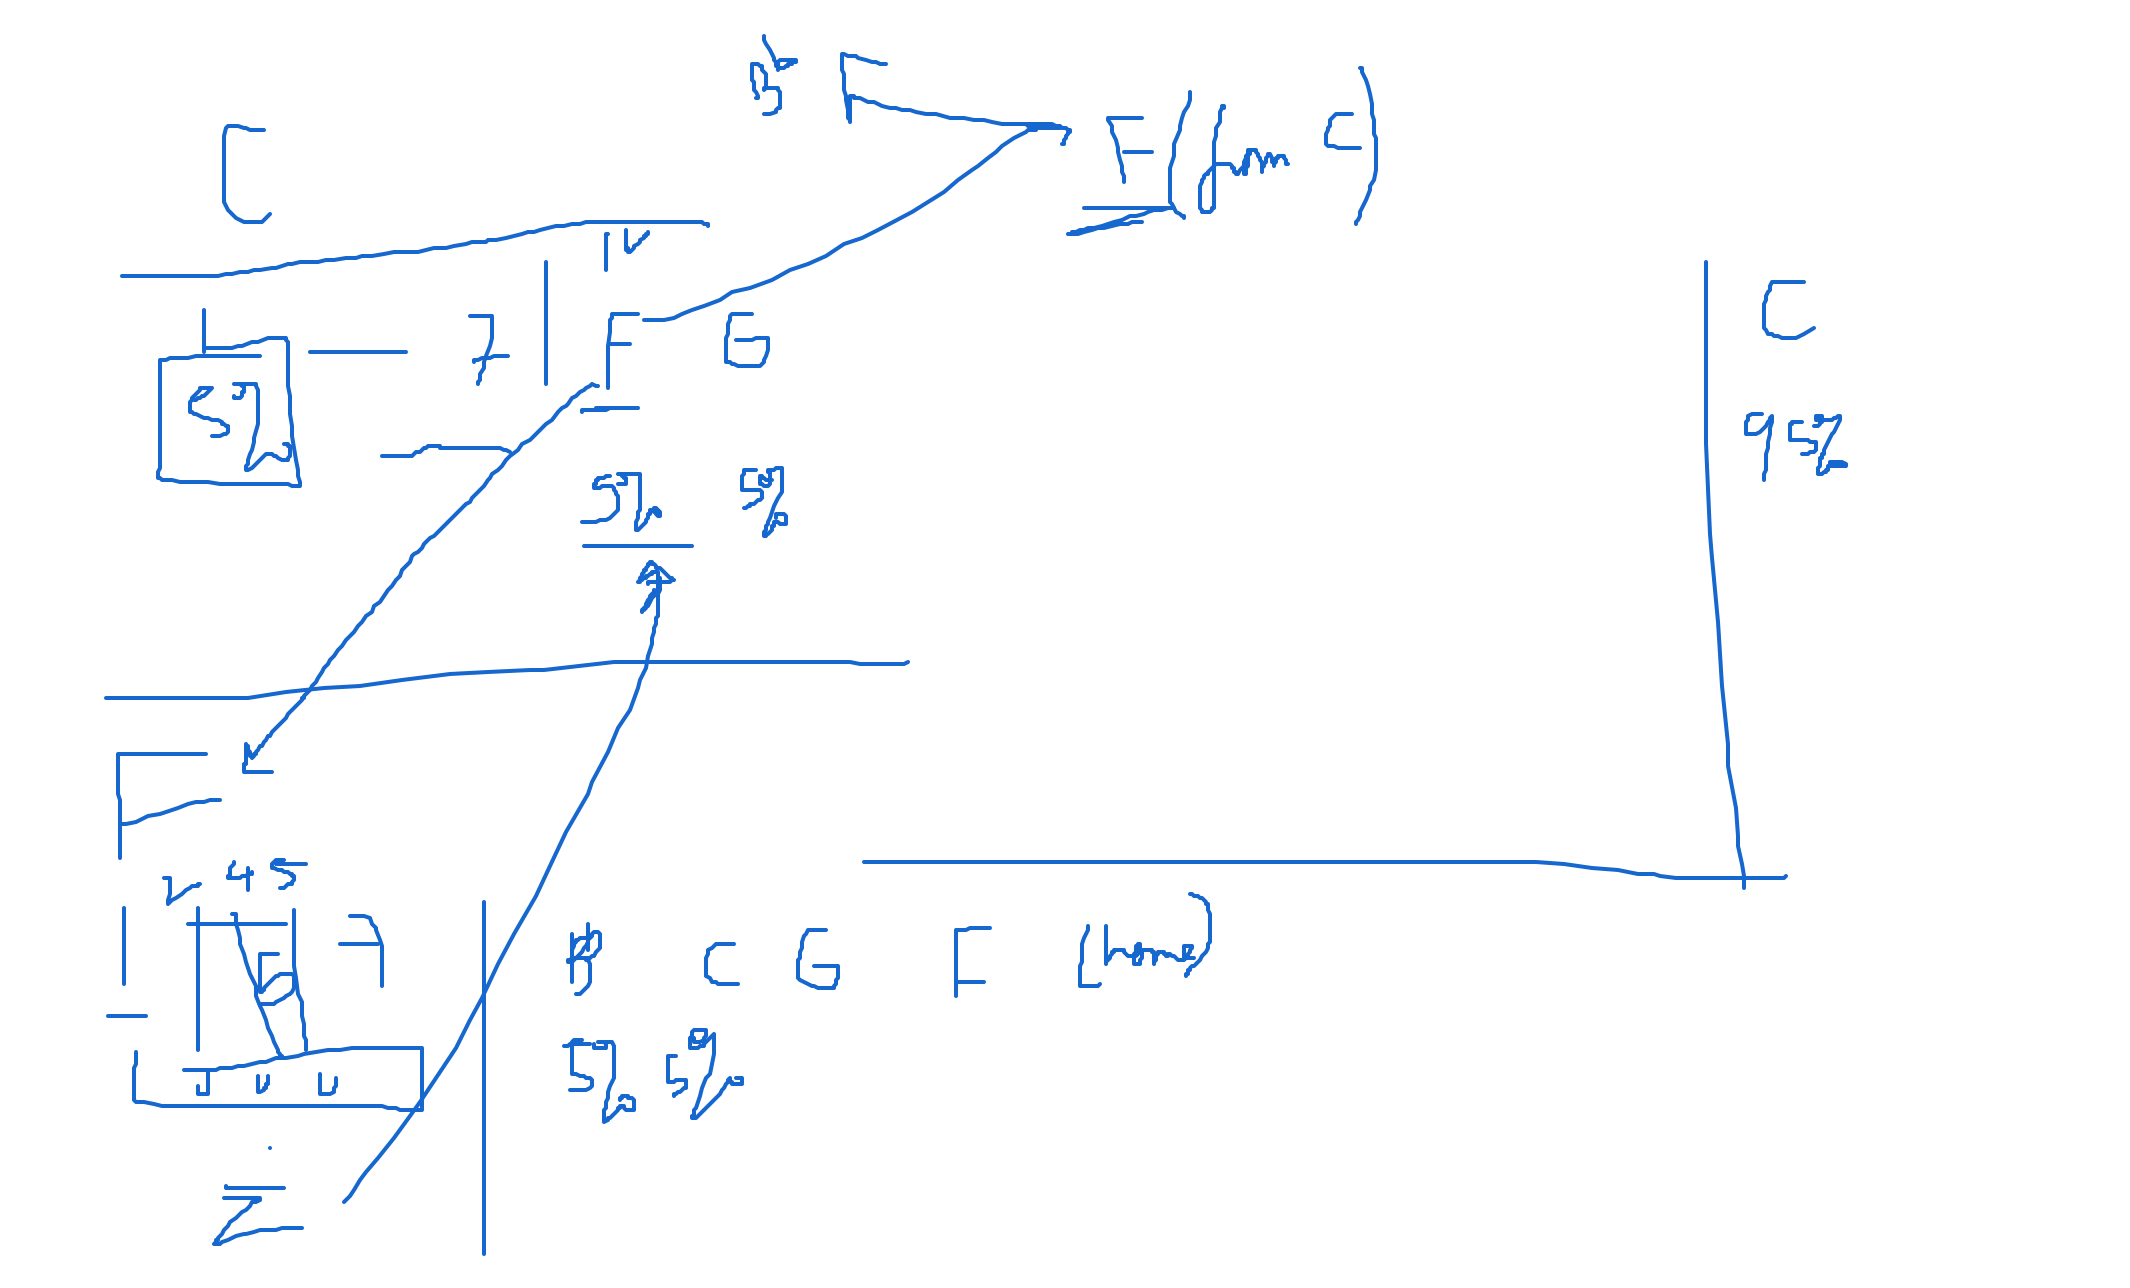 B F
F (from C)
C
1 — 7 F G
C
5%
5% 5%
95%
F
2 4 5
1 7 B C G F (home)
5% 5%
Z